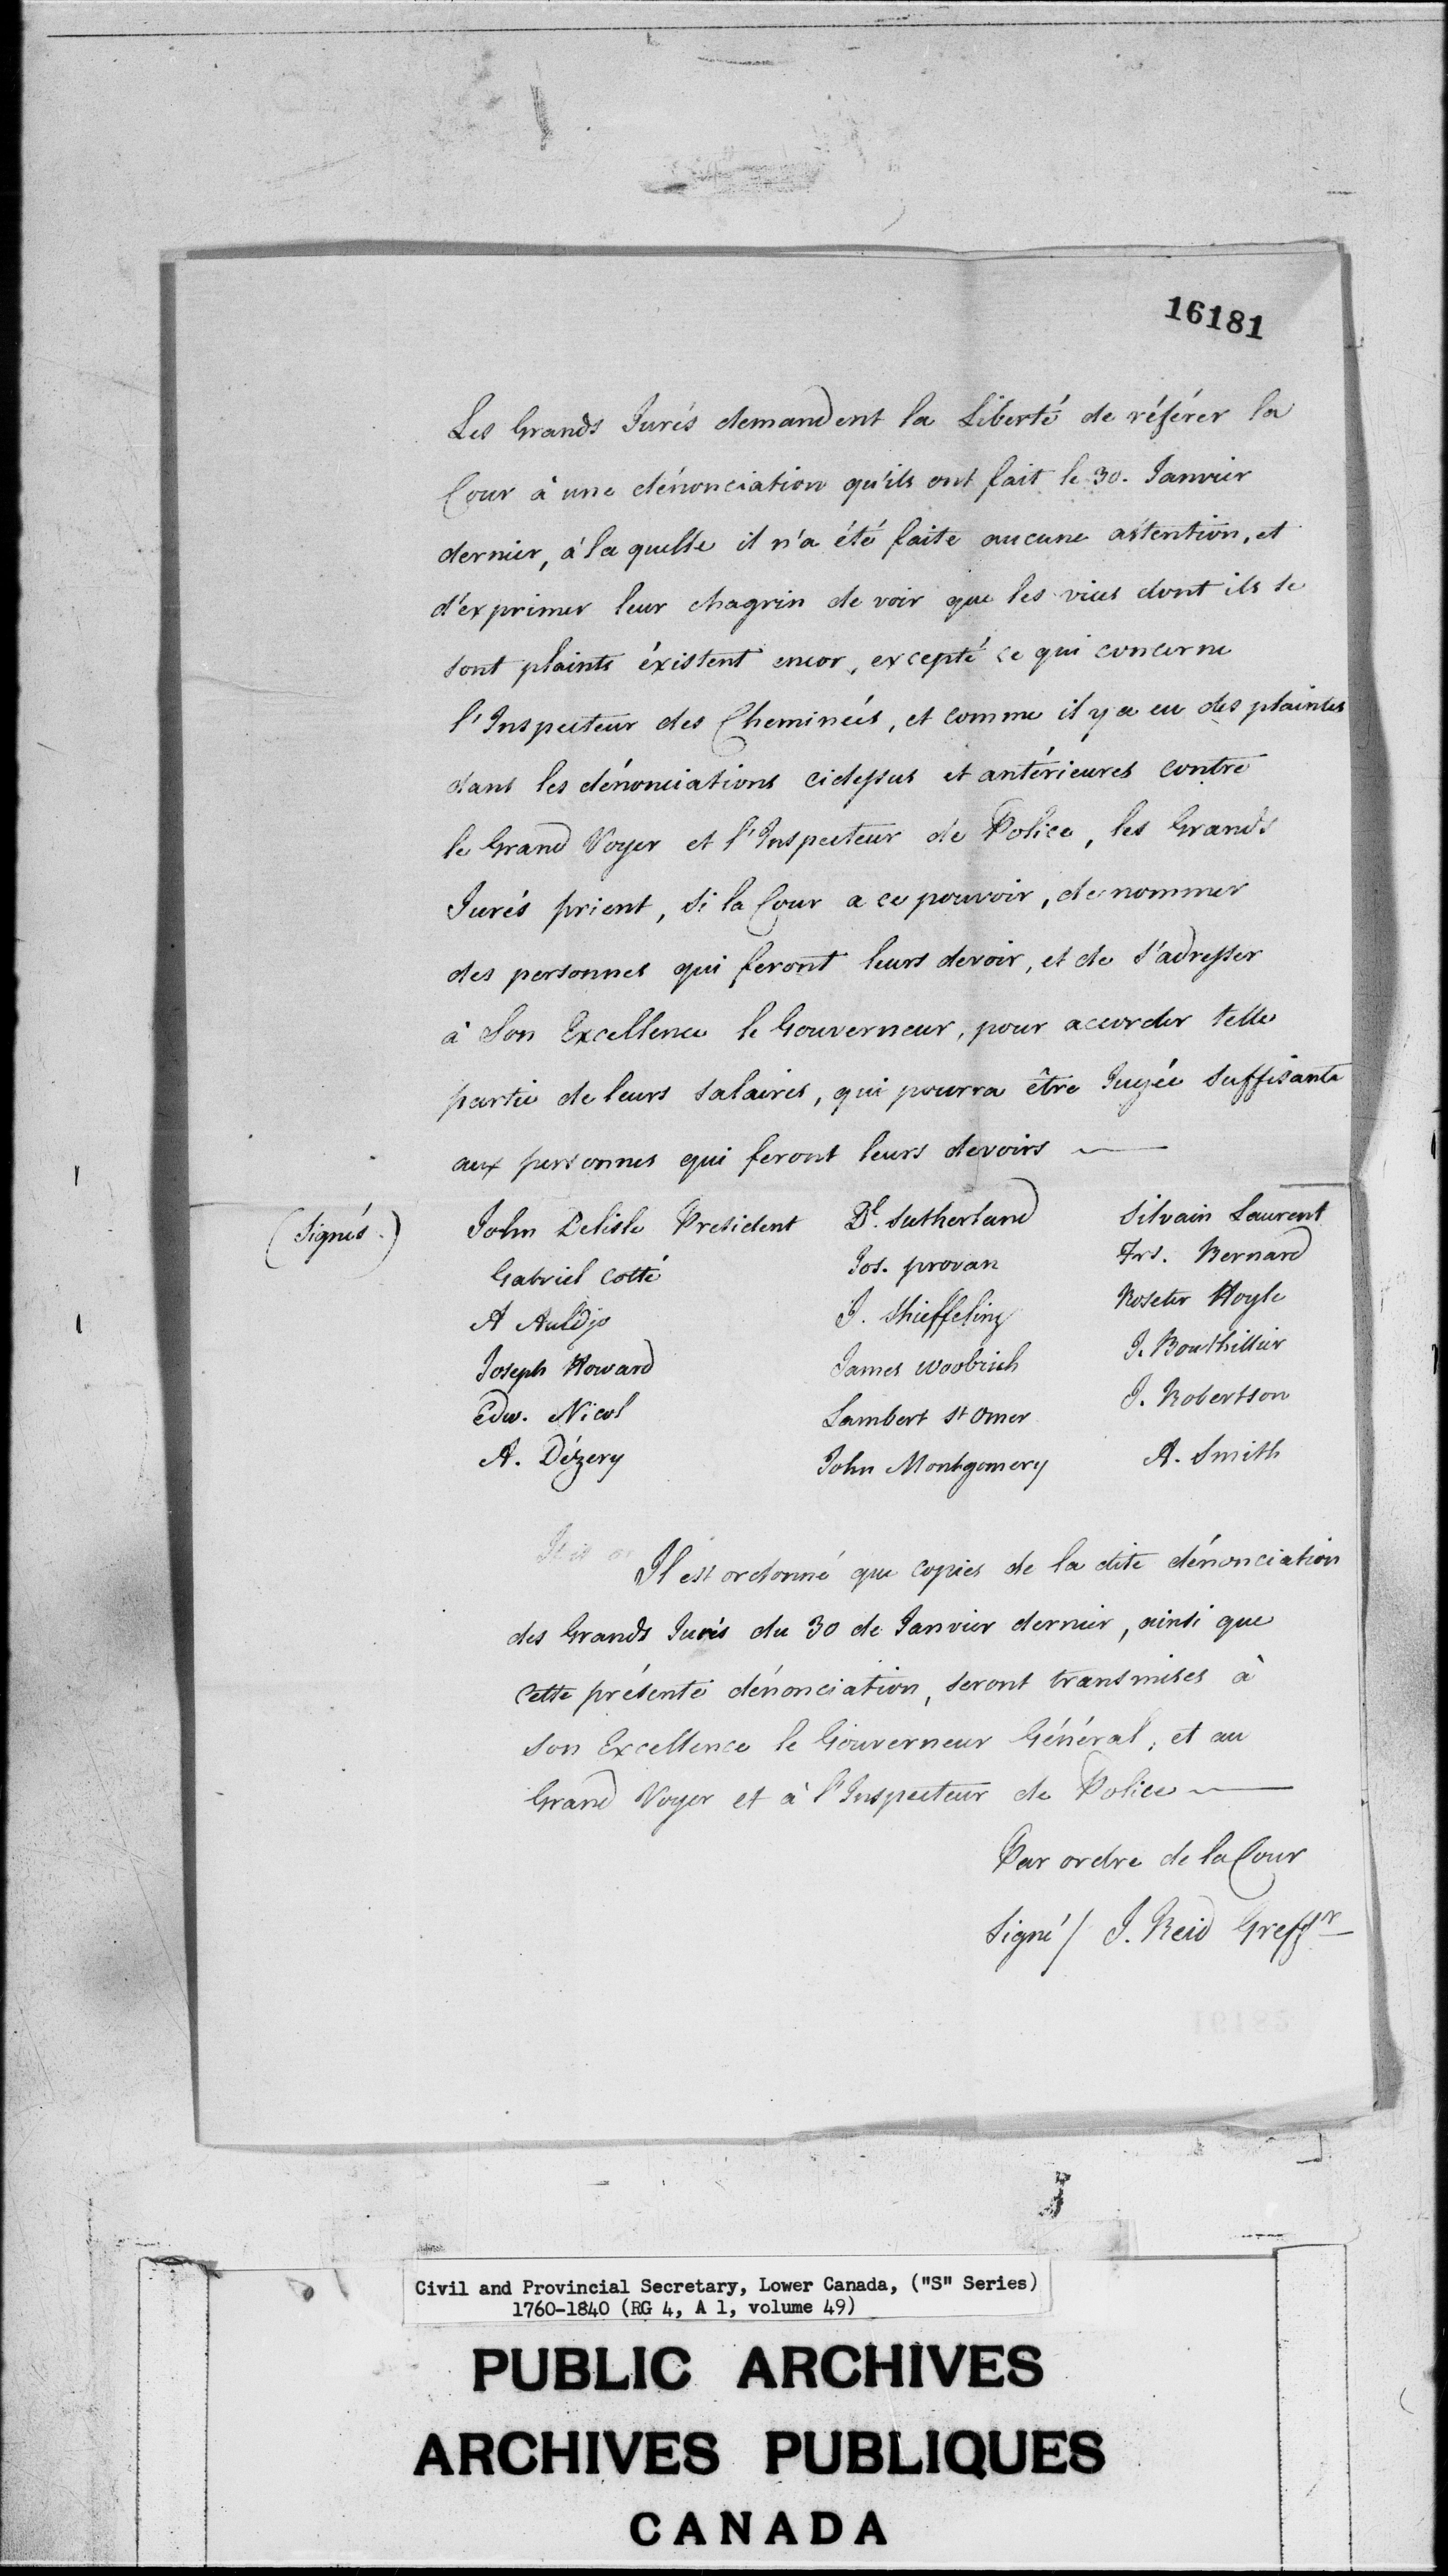 16181
Les Grands Jurés demandent la Liberté de référer la
Cour à une dénonciation qu'ils ont fait le 30. Janvier
dernier, à la quelle il n'a été faite aucune attention, et
d'exprimer leur chagrin de voir que les vices dont ils se
sont plaints éxistent encor, excepté ce qui concerne
l'Inspecteur des Cheminées, et comme il y a eu des plaintes
dans les dénonciations cidessus et antérieures contre
le Grand Voyer et l'Inspecteur de Police, les Grands
Jurés prient, si la Cour a ce pouvoir, de nommer
des personnes qui feront leurs devoir, et de s'adresser
à Son Excellence le Gouverneur, pour accorder telle
partie de leurs salaires, qui pourra être Jugée suffisante
aux personnes qui feront leurs devoirs
(Signés.) John Delisle President Dl. Sutherland Silvain Laurent
Gabriel Cotté Jos. provan Frs. Bernard
A Auldjo J. Shieffeling Roseter Hoyle
Joseph Howard James woolrich J. Bouthillier
Edw. Nicol Lambert St Omer J. Robertson
A. Dézery John Montgomery A. Smith
Il est ordonné que copies de la dite dénonciation
des Grands Jurés du 30 de Janvier dernier, ainsi que
cette présente dénonciation, seront transmises à
son Excellence le Gouverneur Général, et au
Grand Voyer et à l'Inspecteur de Police
Par ordre de la Cour
Signé / J. Reid Greffr
Civil and Provincial Secretary, Lower Canada, ("S" Series)
1760-1840 (RG 4, A 1, volume 49)
PUBLIC ARCHIVES
ARCHIVES PUBLIQUES
CANADA